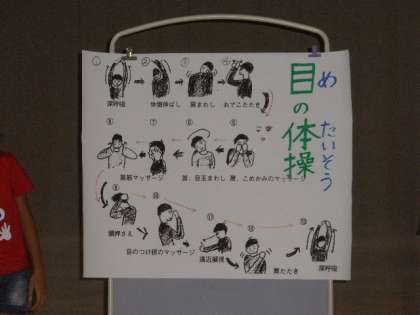 目の体操
め
たいそう
① ② ③ ④
深呼吸 体側伸ばし 肩まわし おでこたたき
⑧ ⑦ ⑥ ⑤
マッサージ 首、目玉まわし 眉、こめかみのマッサージ
⑨ ⑩ ⑪ ⑫ ⑬
頭押さえ
目のつけ根のマッサージ
遠近
肩たたき
深呼吸